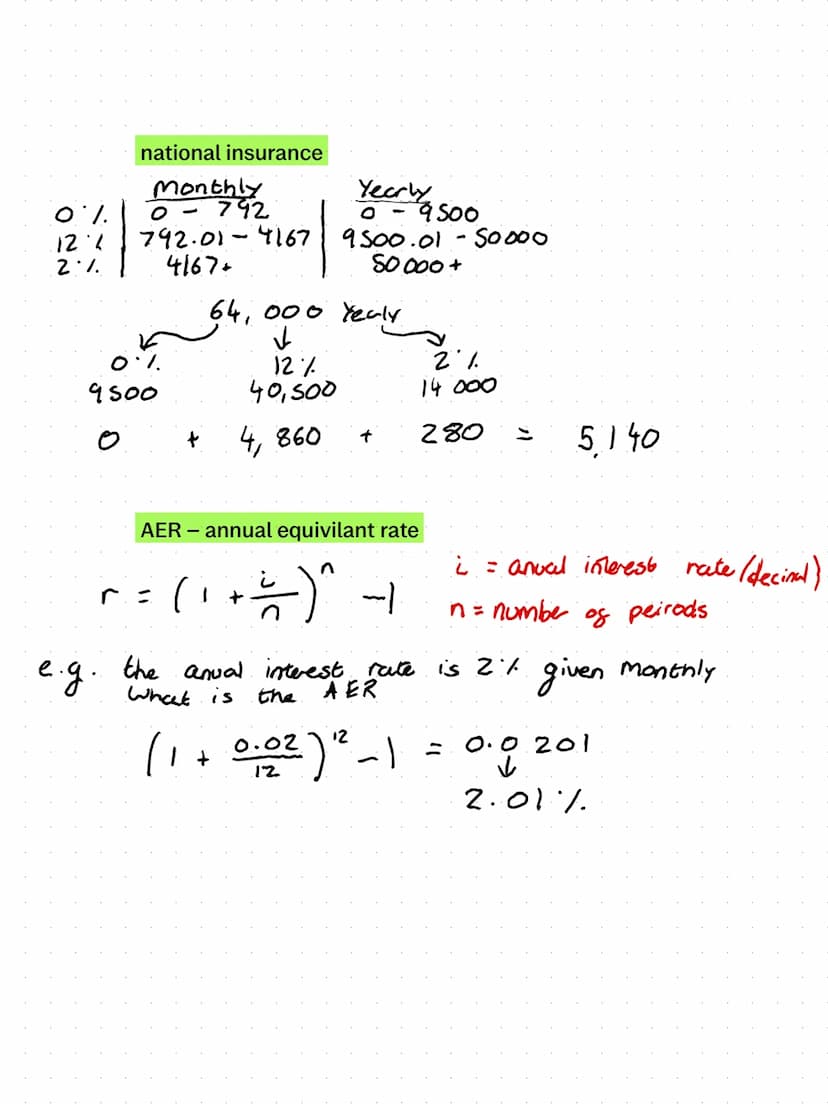 national insurance
Monthly Yearly
0% 0 - 792 0 - 9500
12% 792.01 - 4167 9500.01 - 50000
2% 4167+ 50000+
64,000 Yearly
0% 12% 2%
9500 40,500 14 000
0 + 4,860 + 280 = 5,140
AER – annual equivilant rate
r = (1 + i/n)^n - 1
i = anual interest rate/decimal)
n = number of peirods
e.g. the anual interest rate is 2% given monthly
What is the AER
(1 + 0.02/12)^12 - 1 = 0.0201
↓
2.01%